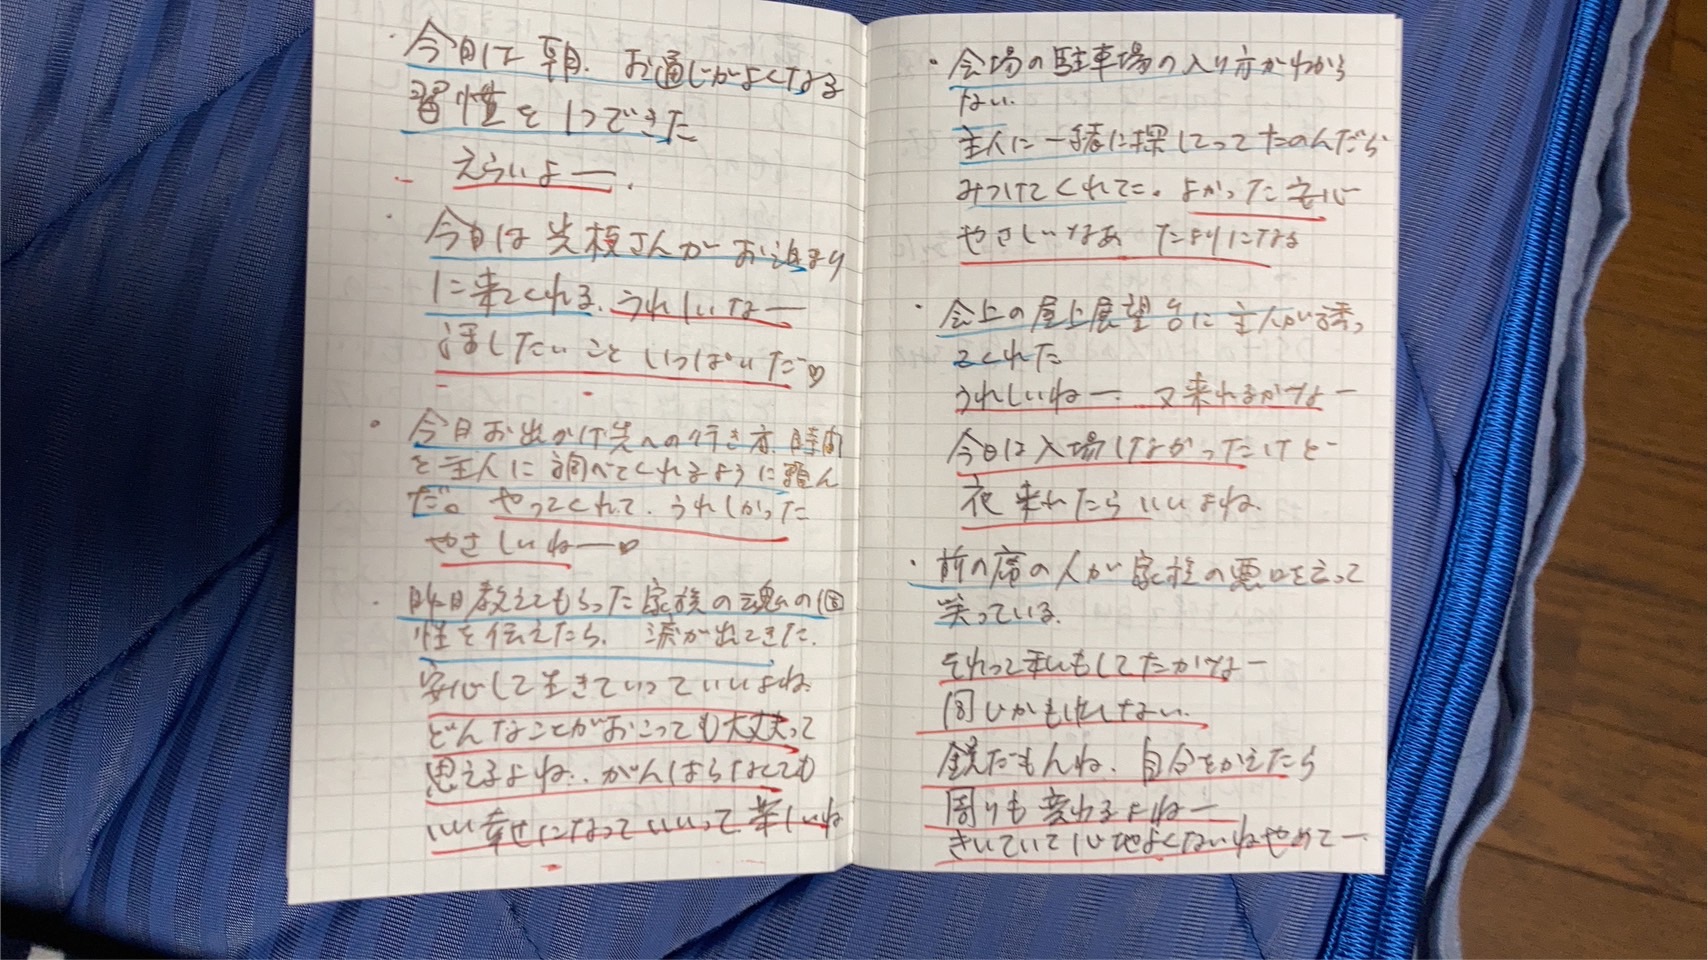 ・今日は朝、お通じがよくなる
習慣を1つできた
えらいよー.
・今日は さんがお泊まり
に来てくれる、うれしいなー
話したいこといっぱいだ♡
・今日お出かけ先への行き方、時間
を主人に調べてくれるように頼ん
だ。やってくれて、うれしかった
やさしいねー♡
・昨日教えてもらった家族の魂の個
性を伝えたら、涙が出てきた.
安心して生きていっていいよね.
どんなことがおこっても大丈夫って
思えるよね.. がんばらなくても
いい幸せになっていいって 嬉しいね
・会場の駐車場の入り方がわから
ない.
主人に一緒に探してってたのんだら
みつけてくれてた. よかった安心
やさしいなぁ たよりになる
・会上の屋上展望台に主人が誘っ
てくれた
うれしいねー 又来れるかなー
今日は入場しなかったけどー
夜来れたらいいよね.
・前の席の人が家族の悪口を言って
笑っている.
それって私もしてたかなー
同じかもしれない.
鏡だもんね、自分をかえたら
周りも変わるよねー
きいていて心地よくないねやめてー